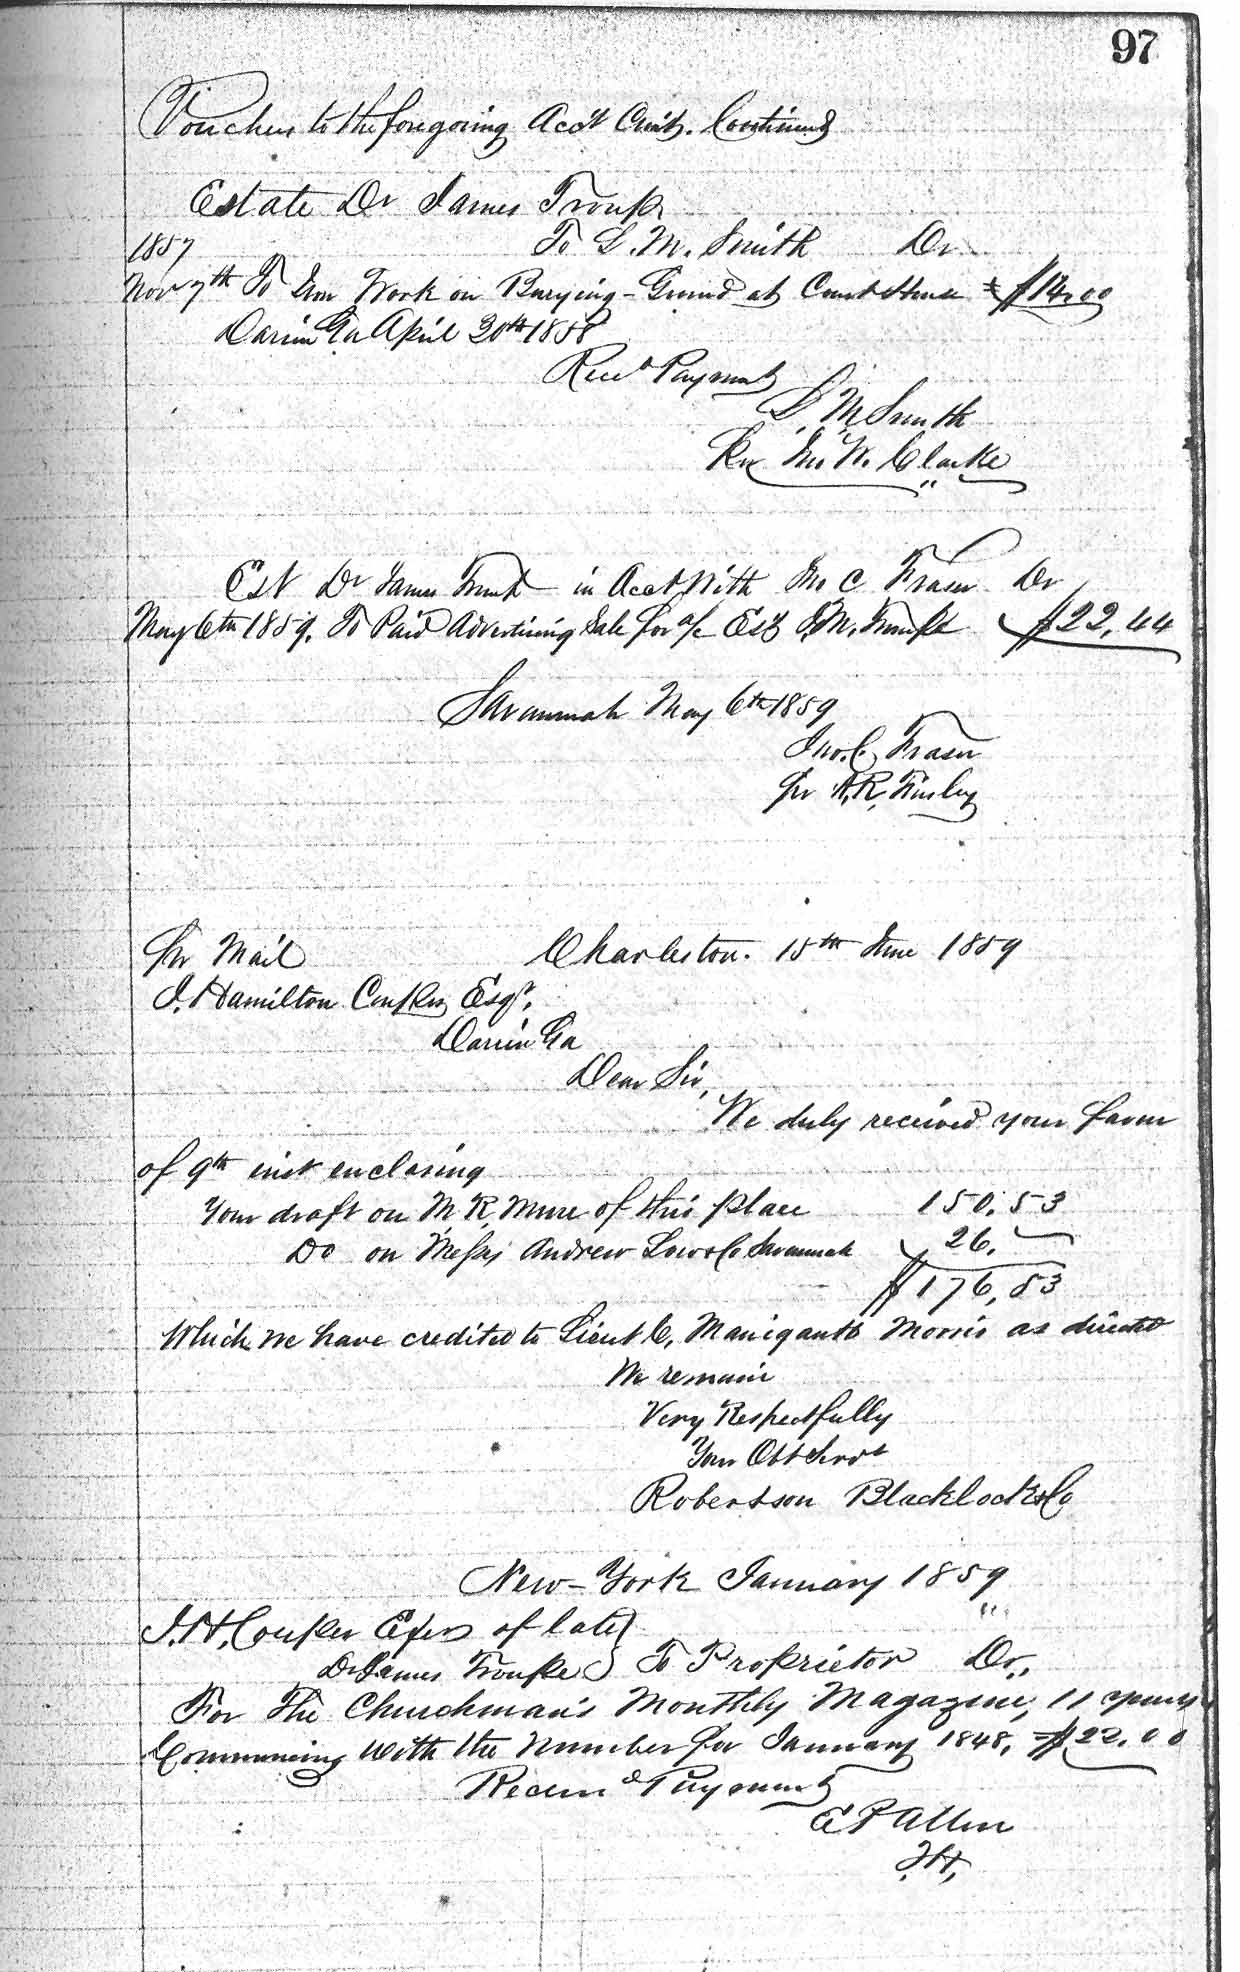 97
Vouchers to the foregoing Acc't Cur't. Continued
Estate Dr James Troup
1857 To L. M. Smith Dr
Nov 7th To Iron Work on Burying-Ground at Court House $14.00
Darien Ga April 20th 1858
Recd Payment
L M Smith
Per Jno. W. Clarke
Est Dr James Troup in Acct With Jno C Fraser Dr
May 6th 1859. To Paid Advertising Sale for a/c Est J. M. Troup $22,44
Savannah May 6th 1859
Jno. C. Fraser
Per A. R. Tinsley
Per Mail Charleston. 15th June 1859
J. Hamilton Couper Esqr.
Darien Ga
Dear Sir,
We duly received your favor
of 9th inst enclosing
Your draft on M R Mure of this place 150.53
Do on Messrs Andrew Low & Co Savannah 26.
$176,53
Which we have credited to Lieut C, Manigault Morris as directed
We remain
Very Respectfully
Your Obt Servt
Robertson Blacklock & Co
New-York January 1859
J. H. Couper Exer of late
Dr James Troupe To Proprietor Dr.
For The Churchman's Monthly Magazine, 11 years
Commencing with the number for January 1848, $22.00
Received Payment
E P Allen